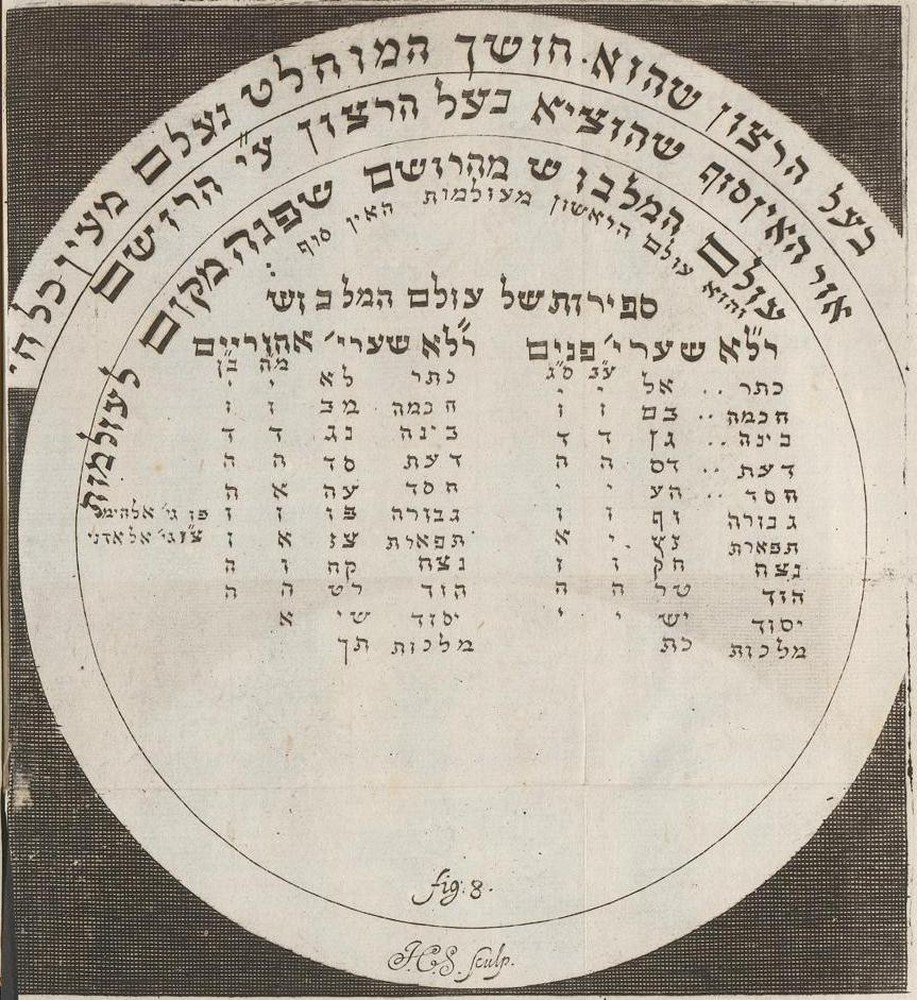 בעל הרצון שהוא. חושך המוחלט נעלם מעין כל הי
אור האין סוף שהוציא בעל הרצון ע"י הרושם
עולם המלבוש מהרושם שפנה מקום לעולמות
והוא עולם הראשון מעולמות האין סוף :
ספירות של עולם המלבוש
רל"א שערי' פנים
ע"ב ס"ג
כתר .. אל י י
חכמה .. בם ו ו
בינה .. גן ד ד
דעת .. דס ה ה
חסד .. הע י י
גבורה וף ו ו
תפארת זצ י א
נצח חק ו ו
הוד טר ה ה
יסוד יש י י
מלכות כת
רל"א שערי' אחוריים
מה ב"ן
כתר לא י י
חכמה מב ו ו
בינה נג ד ד
דעת סד ה ה
חסד עה א ה
גבורה פו ו ו
תפארת צז א ו
נצח קח ו ה
הוד רט ה ה
יסוד שי א
מלכות תך
פו גי' אלהים
צ"ז גי' אל אדני
fig: 8.
J.C.S. sculp.